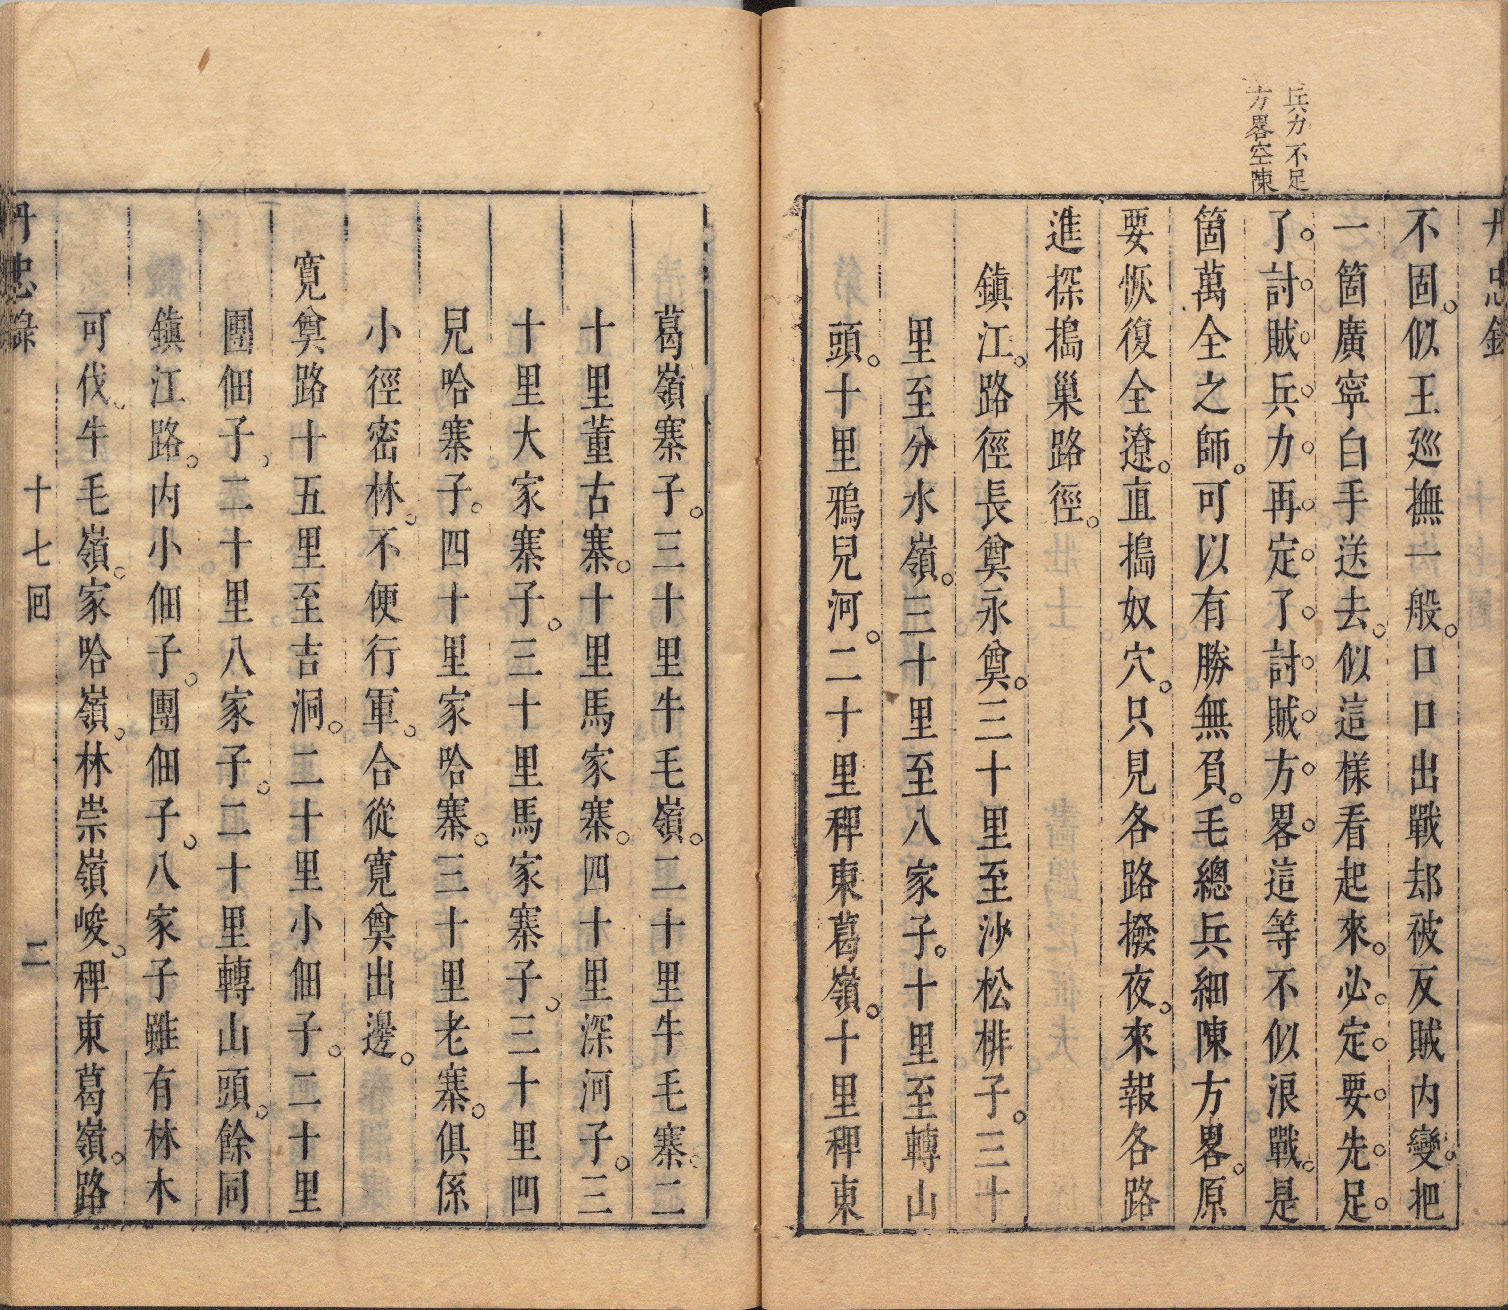 兵力不足
方畧空陳
丹忠錄
不固。似王廵撫一般。口口出戰却被反賊内變。把
一箇廣寧白手送去。似這樣看起來。必定要先足
了討賊兵力。再定了討賊方畧。這等不似浪戰。是
箇萬全之師。可以有勝無負。毛總兵細陳方畧。原
要恢復全遼。直搗奴穴。只見各路撥夜。來報各路
進探搗巢路徑。
鎮江。路徑長奠永奠。三十里至沙松排子。三十
里至分水嶺。三十里至八家子。十里至轉山
頭。十里鴉兒河。二十里稗東葛嶺。十里稗東
葛嶺寨子。三十里牛毛嶺。二十里牛毛寨。二
十里董古寨。十里馬家寨。四十里深河子。三
十里大家寨子。三十里馬家寨子。三十里凹
兒哈寨子。四十里家哈寨。三十里老寨。俱係
小徑密林。不便行軍。合從寬奠出邊。
寬奠路十五里至吉洞。二十里小佃子。二十里
團佃子。二十里八家子。二十里轉山頭。餘同
鎮江路。内小佃子。團佃子。八家子雖有林木
可伐。牛毛嶺。家哈嶺。林崇嶺峻。稗東葛嶺。路
丹忠錄
十七回
二